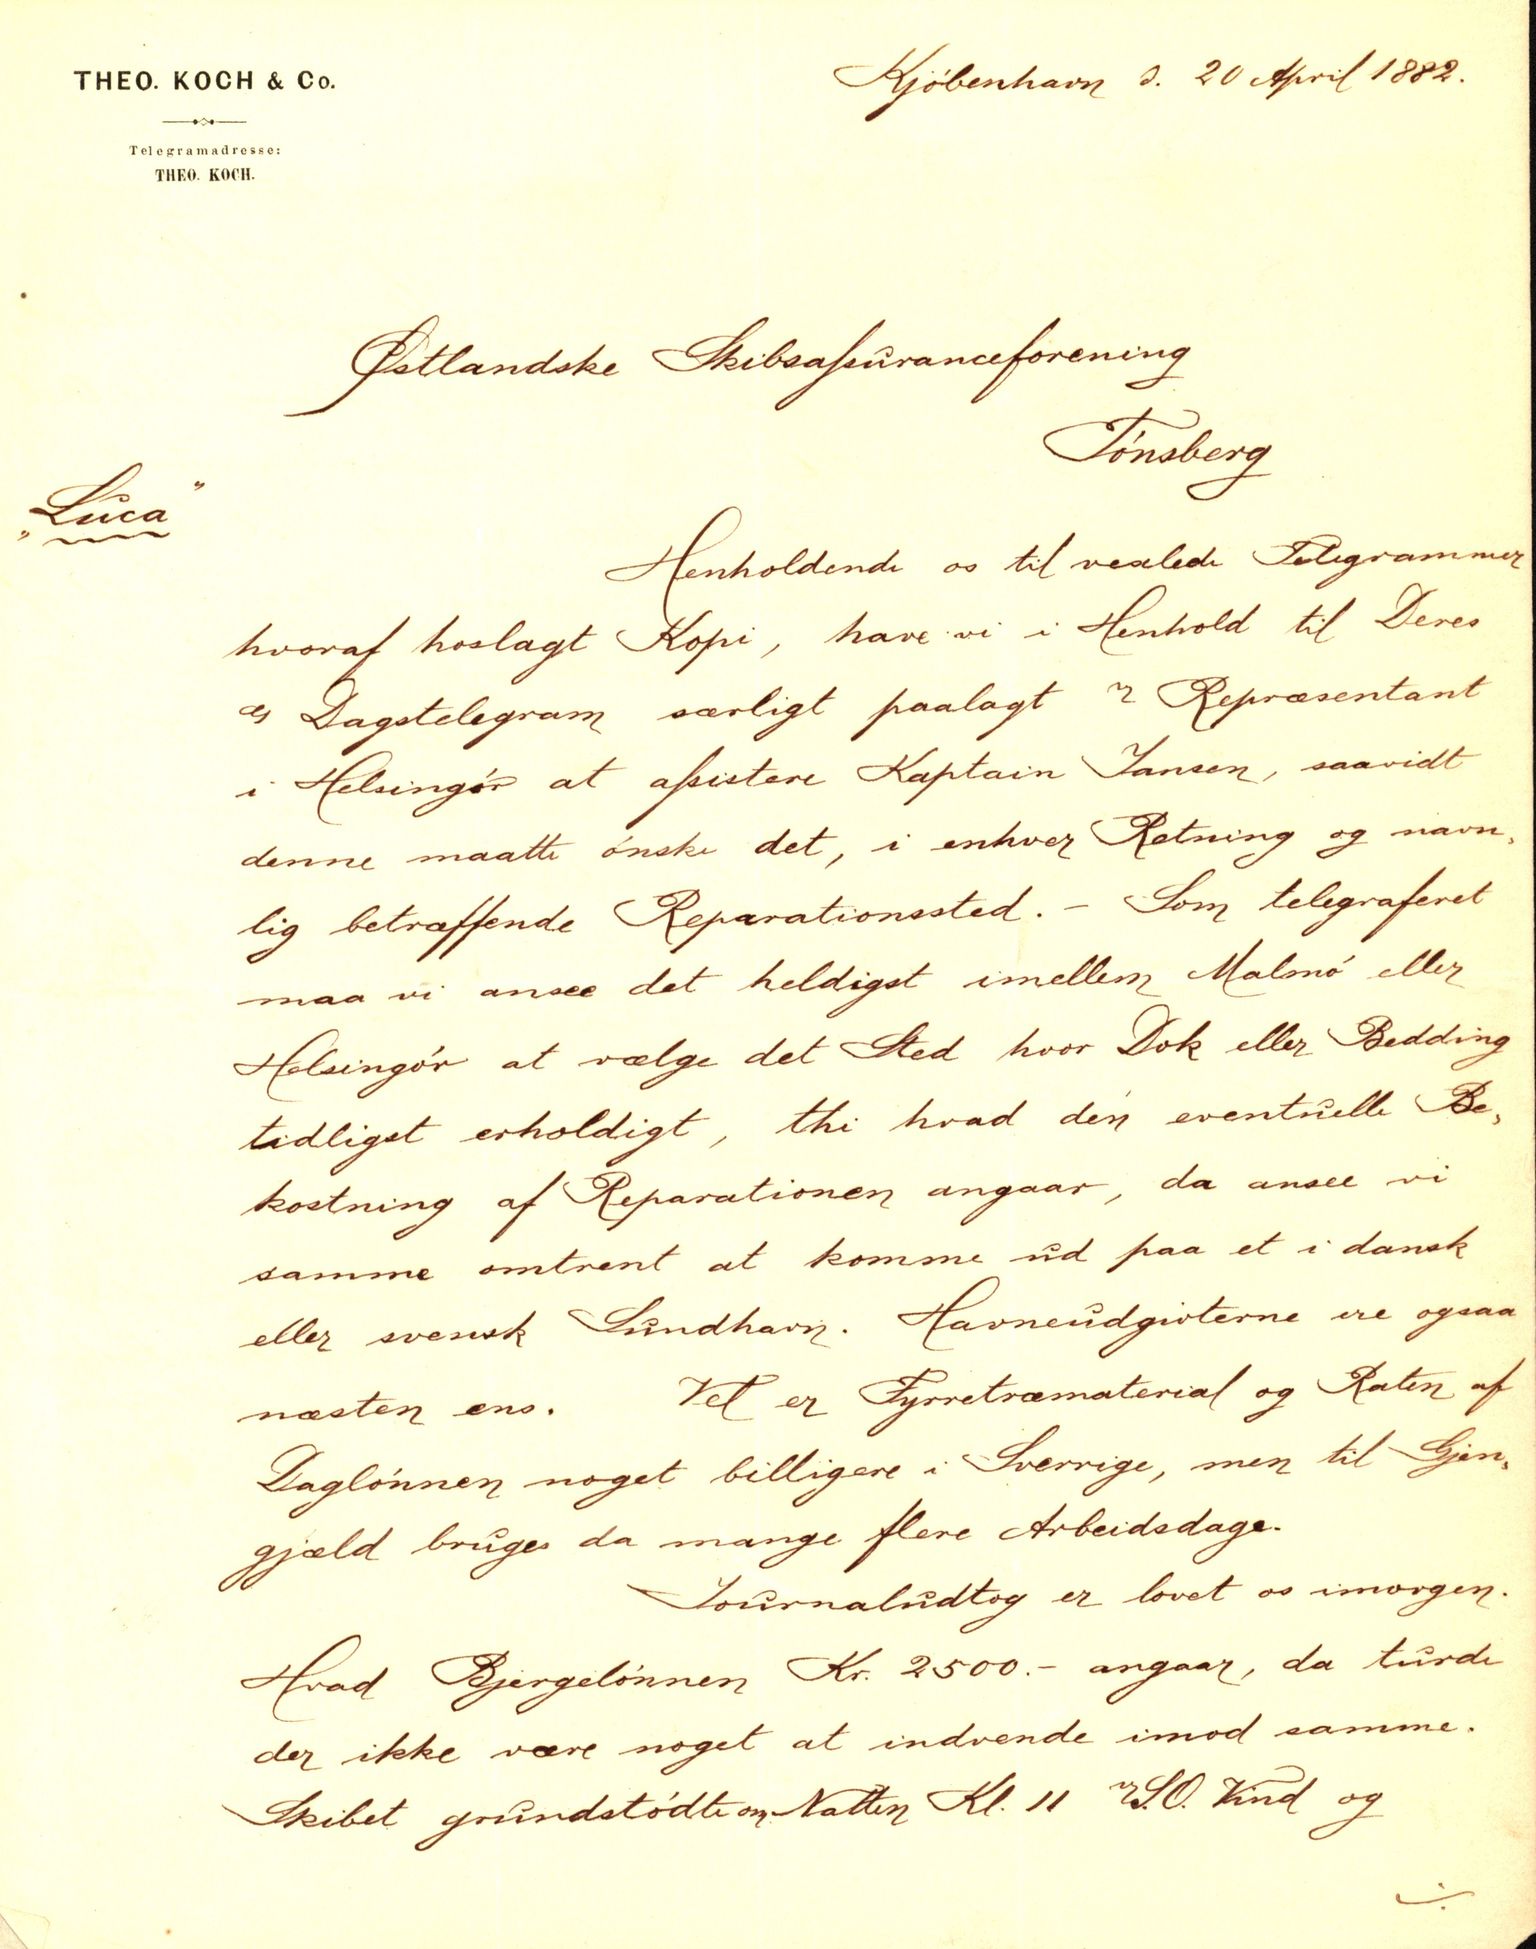 THEO. KOCH & Co.
Kjöbenhavn d. 20 April 1882.
Telegramadresse:
THEO. KOCH.
Østlandske Skibsassuranceforening
Tönsberg
"Luca"
Henholdende os til vexlede Telegrammer
hvoraf hoslagt Kopi, have vi i Henhold til Deres
Dagstelegram særligt paalagt Repræsentant
i Helsingör at assistere Kaptain Jansen, saavidt
denne maatte önske det, i enhver Retning og navn,
lig betræffende Reparationssted. – Som telegraferet
maa vi ansee det heldigst imellem Malmö eller
Helsingör at vælge det Sted hvor Dok eller Bedding
tidligst erholdigt, thi hvad den eventuelle Be,
kostning af Reparationen angaar, da ansee vi
samme omtrent at komme ud paa et i dansk
eller svensk Sundhavn. Havneudgivterne ere ogsaa
næsten ens. Vel er Fyrretræmaterial og Raten af
Daglönnen noget billigere i Sverrige, men til Gjen,
gjæld bruges da mange flere Arbeidsdage.
Journaludtog er lovet os imorgen.
Hvad Bjergelönnen Kr. 2500.- angaar, da turde
der ikke være noget at indvende imod samme.
Skibet grundstödte om Natten Kl. 11 S.O. Vind og